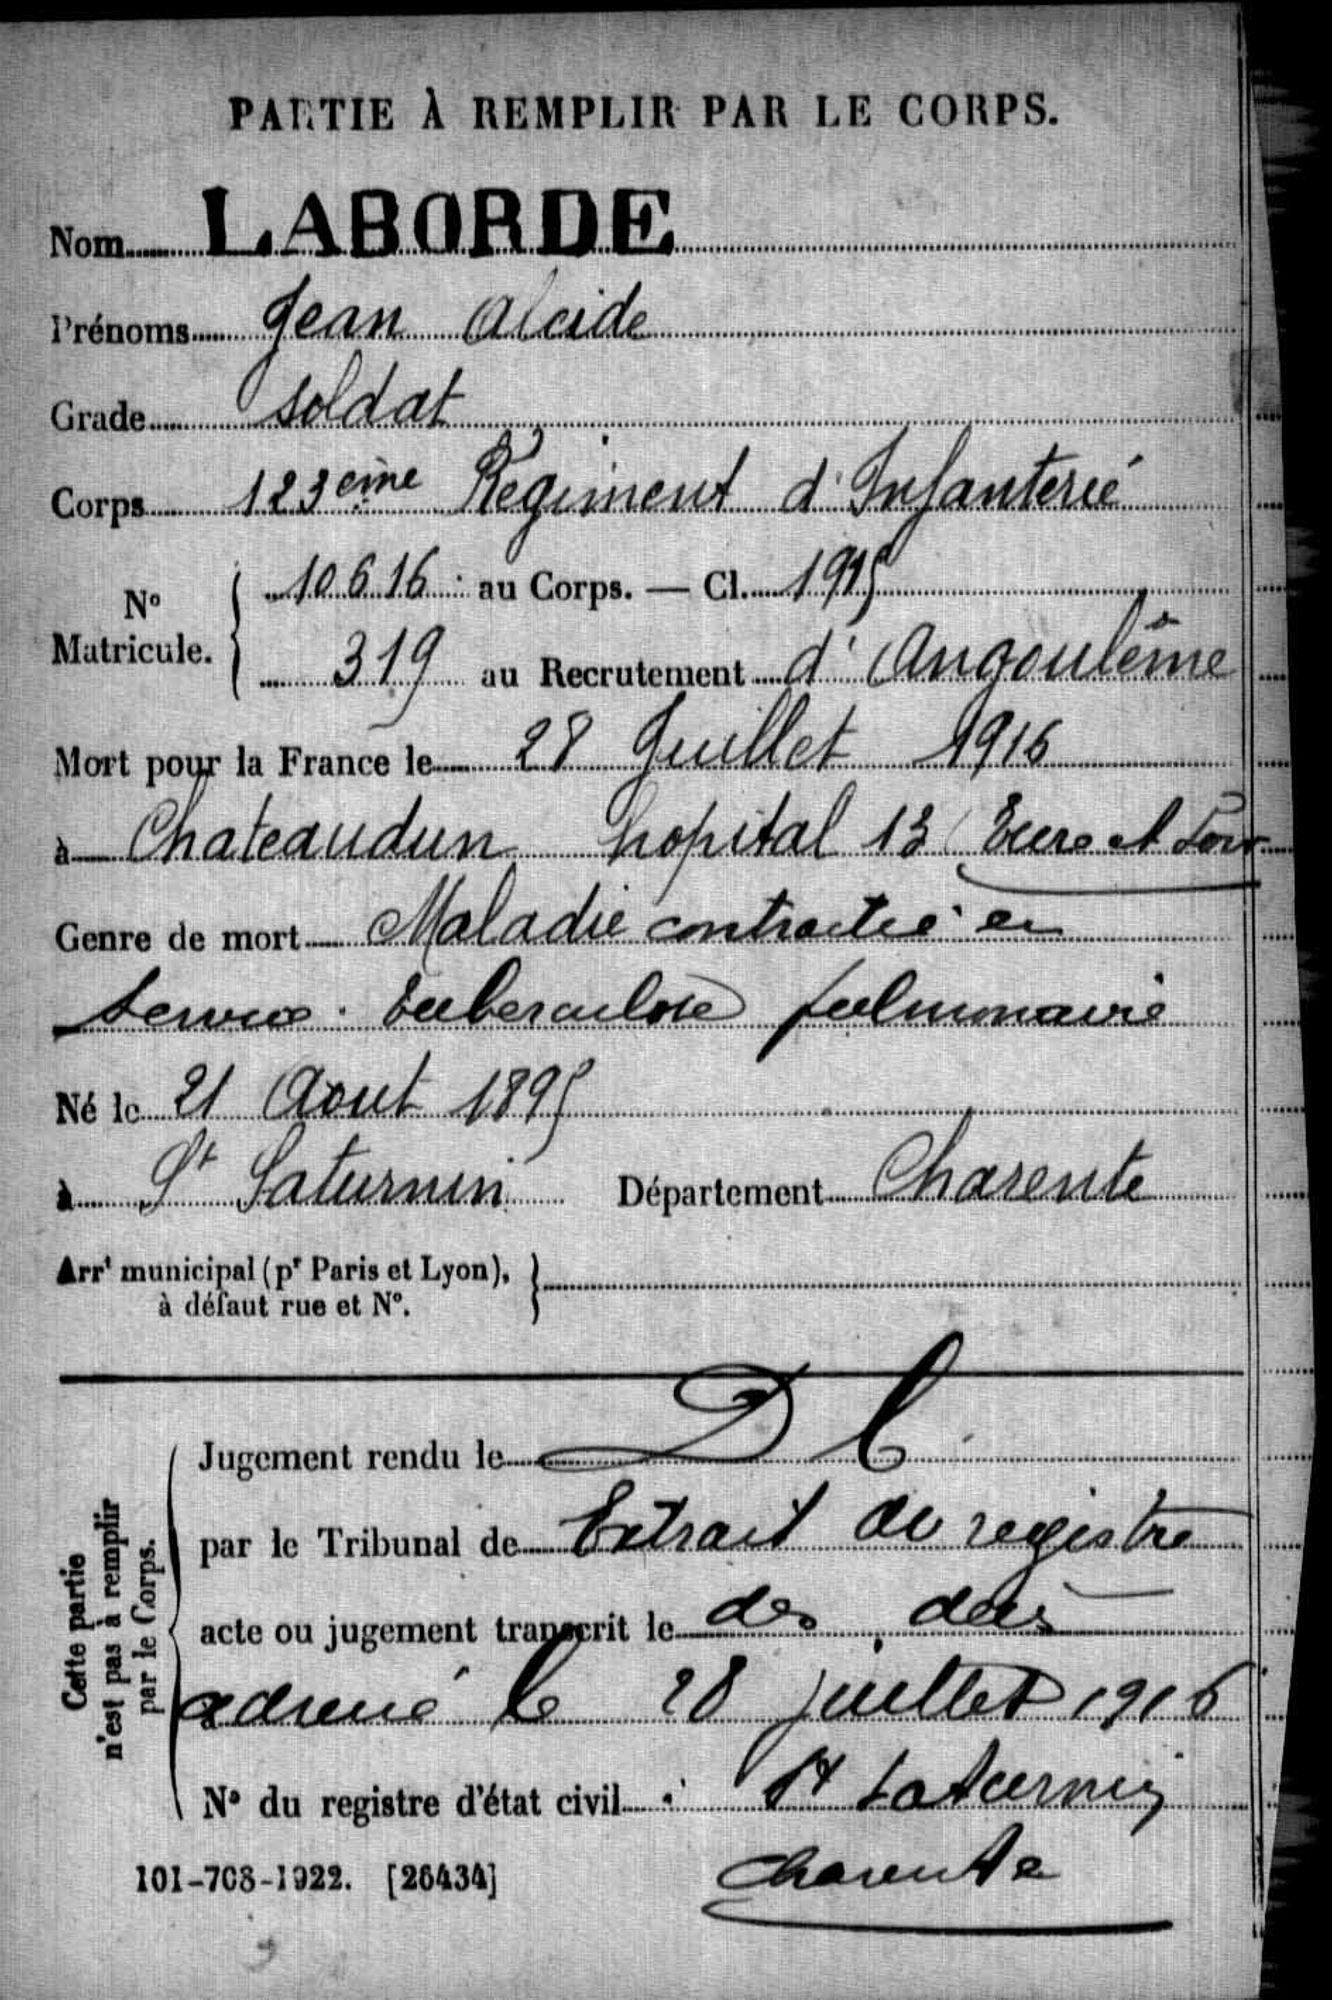 PARTIE À REMPLIR PAR LE CORPS.
Nom LABORDE
Prénoms Jean Alcide
Grade Soldat
Corps 123ème Régiment d'Infanterie
N° Matricule. 10616 au Corps. — Cl. 1915
319 au Recrutement d'Angoulême
Mort pour la France le 28 Juillet 1916
à Chateaudun hopital 13 (Eure et Loir
Genre de mort Maladie contractée en
service. Tuberculose pulmonaire
Né le 21 Aout 1895
à St Saturnin Département Charente
Arrt municipal (pr Paris et Lyon),
à défaut rue et N°.
Cette partie n'est pas à remplir par le Corps.
Jugement rendu le D C
par le Tribunal de Extrait du registre
acte ou jugement transcrit le des décès
adressé le 28 juillet 1916
N° du registre d'état civil St Saturnin
Charente
101-708-1922. [26434]